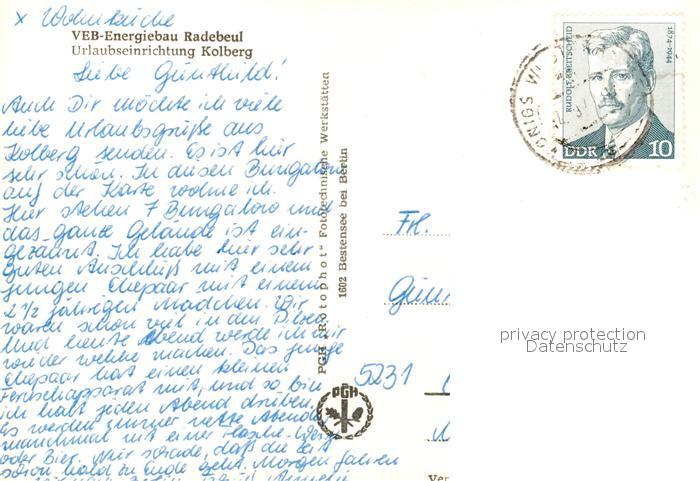 x Wohnküche
VEB-Energiebau Radebeul
Urlaubseinrichtung Kolberg
Liebe Günthild!
Auch Dir möchte ich viele
liebe Urlaubsgrüße aus
Kolberg senden. Es ist hier
sehr schön. In diesen Bungalow
auf der Karte wohne ich.
Hier stehen 7 Bungalow und
das ganze Gelände ist ein-
gezäunt. Ich habe hier sehr
guten Anschluß mit einem
jungen Ehepaar mit einem
2 1/2 jährigen Mädchen. Wir
waren schon viel in den
Und heute Abend werde ich mir
wieder welche machen. Das junge
Ehepaar hat einen kleinen
Fernsehapparat mit, und so bin
ich halt jeden Abend drüben.
Es werden immer nette Abende
manchmal mit einer Flasche Wein
oder Bier. Nur schade, daß die Zeit
schon bald zu Ende geht. Morgen fahren
PGH „Rotophot“ Fotot echnische Werkstätten
1602 Bestensee bei Berlin
PGH
RUDOLF BREITSCHEID
1874-1944
DDR 10
KÖNIGS W
Frl.
Gün
5231
privacy protection
Datenschutz
Ver